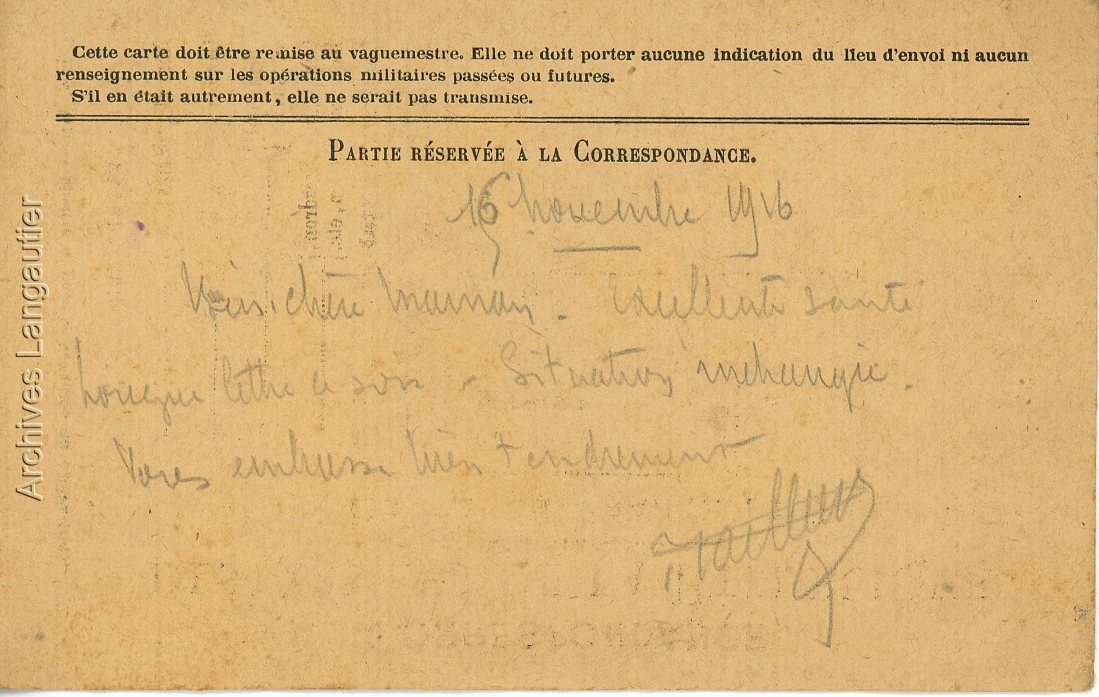 Cette carte doit être remise au vaguemestre. Elle ne doit porter aucune indication du lieu d'envoi ni aucun
renseignement sur les opérations militaires passées ou futures.
S'il en était autrement, elle ne serait pas transmise.
PARTIE RÉSERVÉE À LA CORRESPONDANCE.
16 novembre 1916
chère Maman. Excellente santé
longue lettre ce soir - Situation inchangée.
Vous embrasse bien tendrement
Archives Langautier